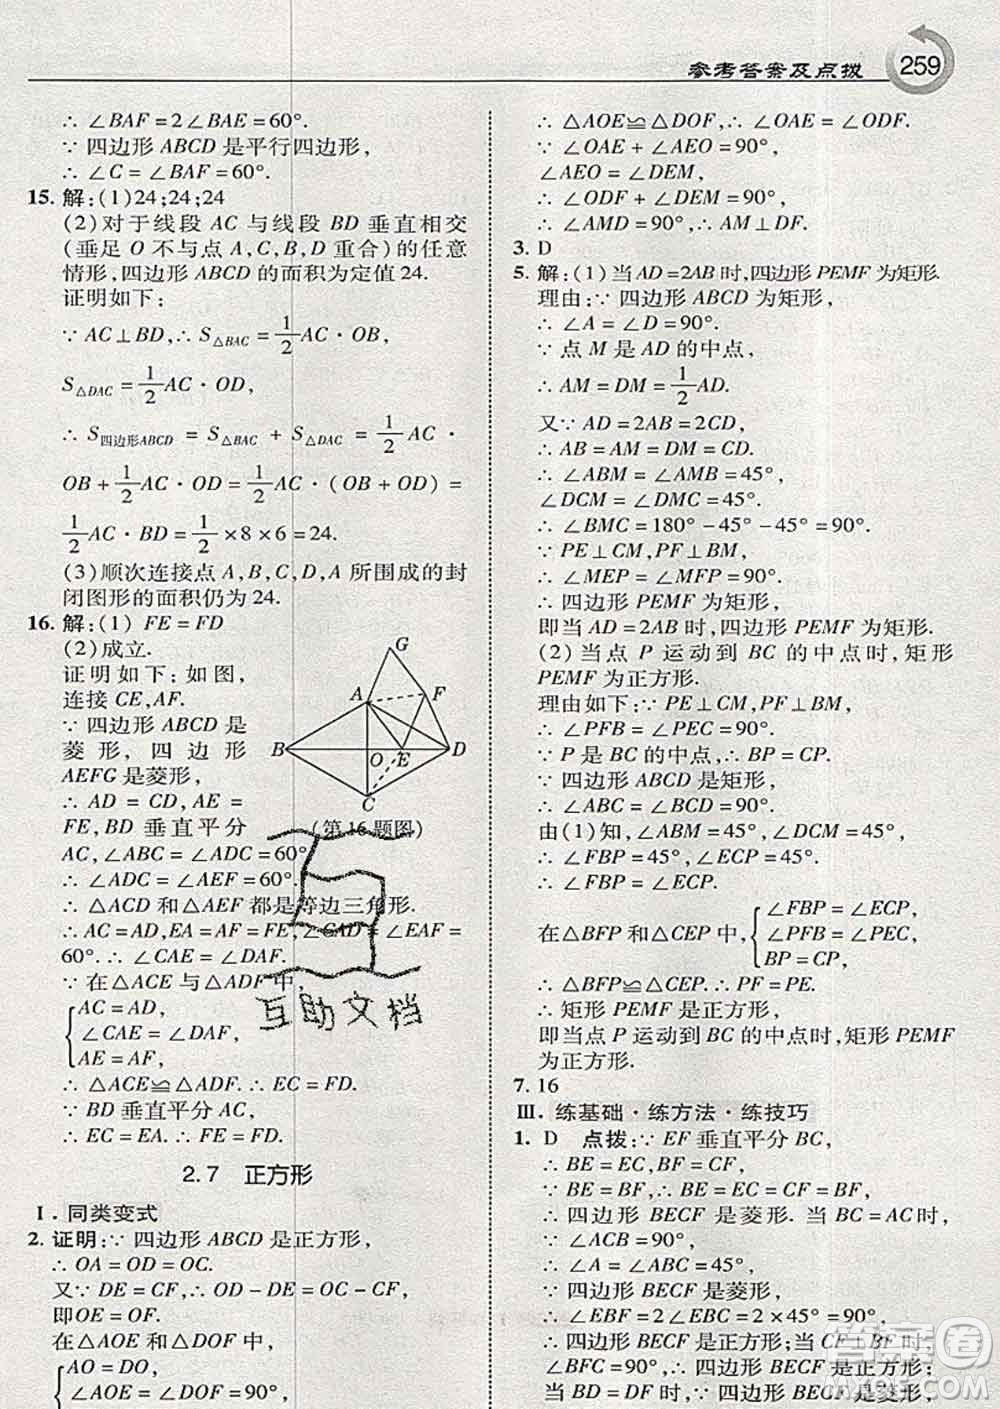 参考答案及点拨
259
∴ ∠BAF=2∠BAE=60°.
∵ 四边形 ABCD 是平行四边形,
∴ ∠C=∠BAF=60°.
15. 解:(1)24;24;24
(2)对于线段 AC 与线段 BD 垂直相交
(垂足 O 不与点 A,C,B,D 重合)的任意
情形,四边形 ABCD 的面积为定值 24.
证明如下:
∵ AC⊥BD,∴ S△BAC=1/2 AC·OB,
S△DAC=1/2 AC·OD,
∴ S四边形ABCD = S△BAC + S△DAC = 1/2 AC·
OB+1/2 AC·OD=1/2 AC·(OB+OD)=
1/2 AC·BD=1/2×8×6=24.
(3)顺次连接点 A,B,C,D,A 所围成的封
闭图形的面积仍为 24.
16. 解:(1) FE=FD
(2)成立.
证明如下:如图,
连接 CE,AF.
∵ 四边形 ABCD 是
菱形,四边形
AEFG 是菱形,
∴ AD = CD,AE =
FE,BD 垂直平分
AC,∠ABC=∠ADC=60°
∴ ∠ADC=∠AEF=60°.
∴ △ACD 和△AEF 都是等边三角形.
∴ AC=AD,EA=AF=FE,∠CAD=∠EAF=
60°. ∴ ∠CAE=∠DAF.
∵ 在△ACE 与△ADF 中,
AC=AD,
∠CAE=∠DAF,
AE=AF,
∴ △ACE≌△ADF. ∴ EC=FD.
∵ BD 垂直平分 AC,
∴ EC=EA. ∴ FE=FD.
G
A
F
B
O
E
D
C
(第 16 题图)
互助文档
2.7 正方形
Ⅰ. 同类变式
2. 证明:∵ 四边形 ABCD 是正方形,
∴ OA=OD=OC.
又∵ DE=CF,∴ OD-DE=OC-CF,
即OE=OF.
在△AOE 和△DOF 中,
AO=DO,
∠AOE=∠DOF=90°,
∴ △AOE≌△DOF,∴ ∠OAE=∠ODF.
∵ ∠OAE+∠AEO=90°,
∠AEO=∠DEM,
∴ ∠ODF+∠DEM=90°.
∴ ∠AMD=90°,∴ AM⊥DF.
3. D
5. 解:(1)当 AD=2AB 时,四边形 PEMF 为矩形.
理由:∵ 四边形 ABCD 为矩形,
∴ ∠A=∠D=90°.
∵ 点 M 是 AD 的中点,
∴ AM=DM=1/2 AD.
又∵ AD=2AB=2CD,
∴ AB=AM=DM=CD.
∴ ∠ABM=∠AMB=45°,
∠DCM=∠DMC=45°.
∴ ∠BMC=180°-45°-45°=90°.
∵ PE⊥CM,PF⊥BM,
∴ ∠MEP=∠MFP=90°.
∴ 四边形 PEMF 为矩形,
即当 AD=2AB 时,四边形 PEMF 为矩形.
(2)当点 P 运动到 BC 的中点时,矩形
PEMF 为正方形.
理由如下:∵ PE⊥CM,PF⊥BM,
∴ ∠PFB=∠PEC=90°.
∵ P 是 BC 的中点,∴ BP=CP.
∵ 四边形 ABCD 是矩形,
∴ ∠ABC=∠BCD=90°.
由(1)知,∠ABM=45°,∠DCM=45°,
∴ ∠FBP=45°,∠ECP=45°,
∴ ∠FBP=∠ECP.
在△BFP 和△CEP 中,
∠FBP=∠ECP,
∠PFB=∠PEC=90°,
BP=CP,
∴ △BFP≌△CEP. ∴ PF=PE.
∴ 矩形 PEMF 是正方形,
即当点 P 运动到 BC 的中点时,矩形 PEMF
为正方形.
7. 16
Ⅲ. 练基础·练方法·练技巧
1. D 点拨:∵ EF 垂直平分 BC,
∴ BE=EC,BF=CF.
∵ CF=BE,∴ BE=EC=CF=BF,
∴ 四边形 BECF 是菱形. 当 BC=AC 时,
∵ ∠ACB=90°,
∴ ∠A=∠EBC=45°.
∵ 四边形 BECF 是菱形,
∴ ∠EBF=2∠EBC=2×45°=90°,
∴ 四边形 BECF 是正方形;当 CF⊥BF 时,
∠BFC=90°,∴ 四边形 BECF 是正方形;
当 BD=DF 时,∵ 四边形 BECF 是菱形,